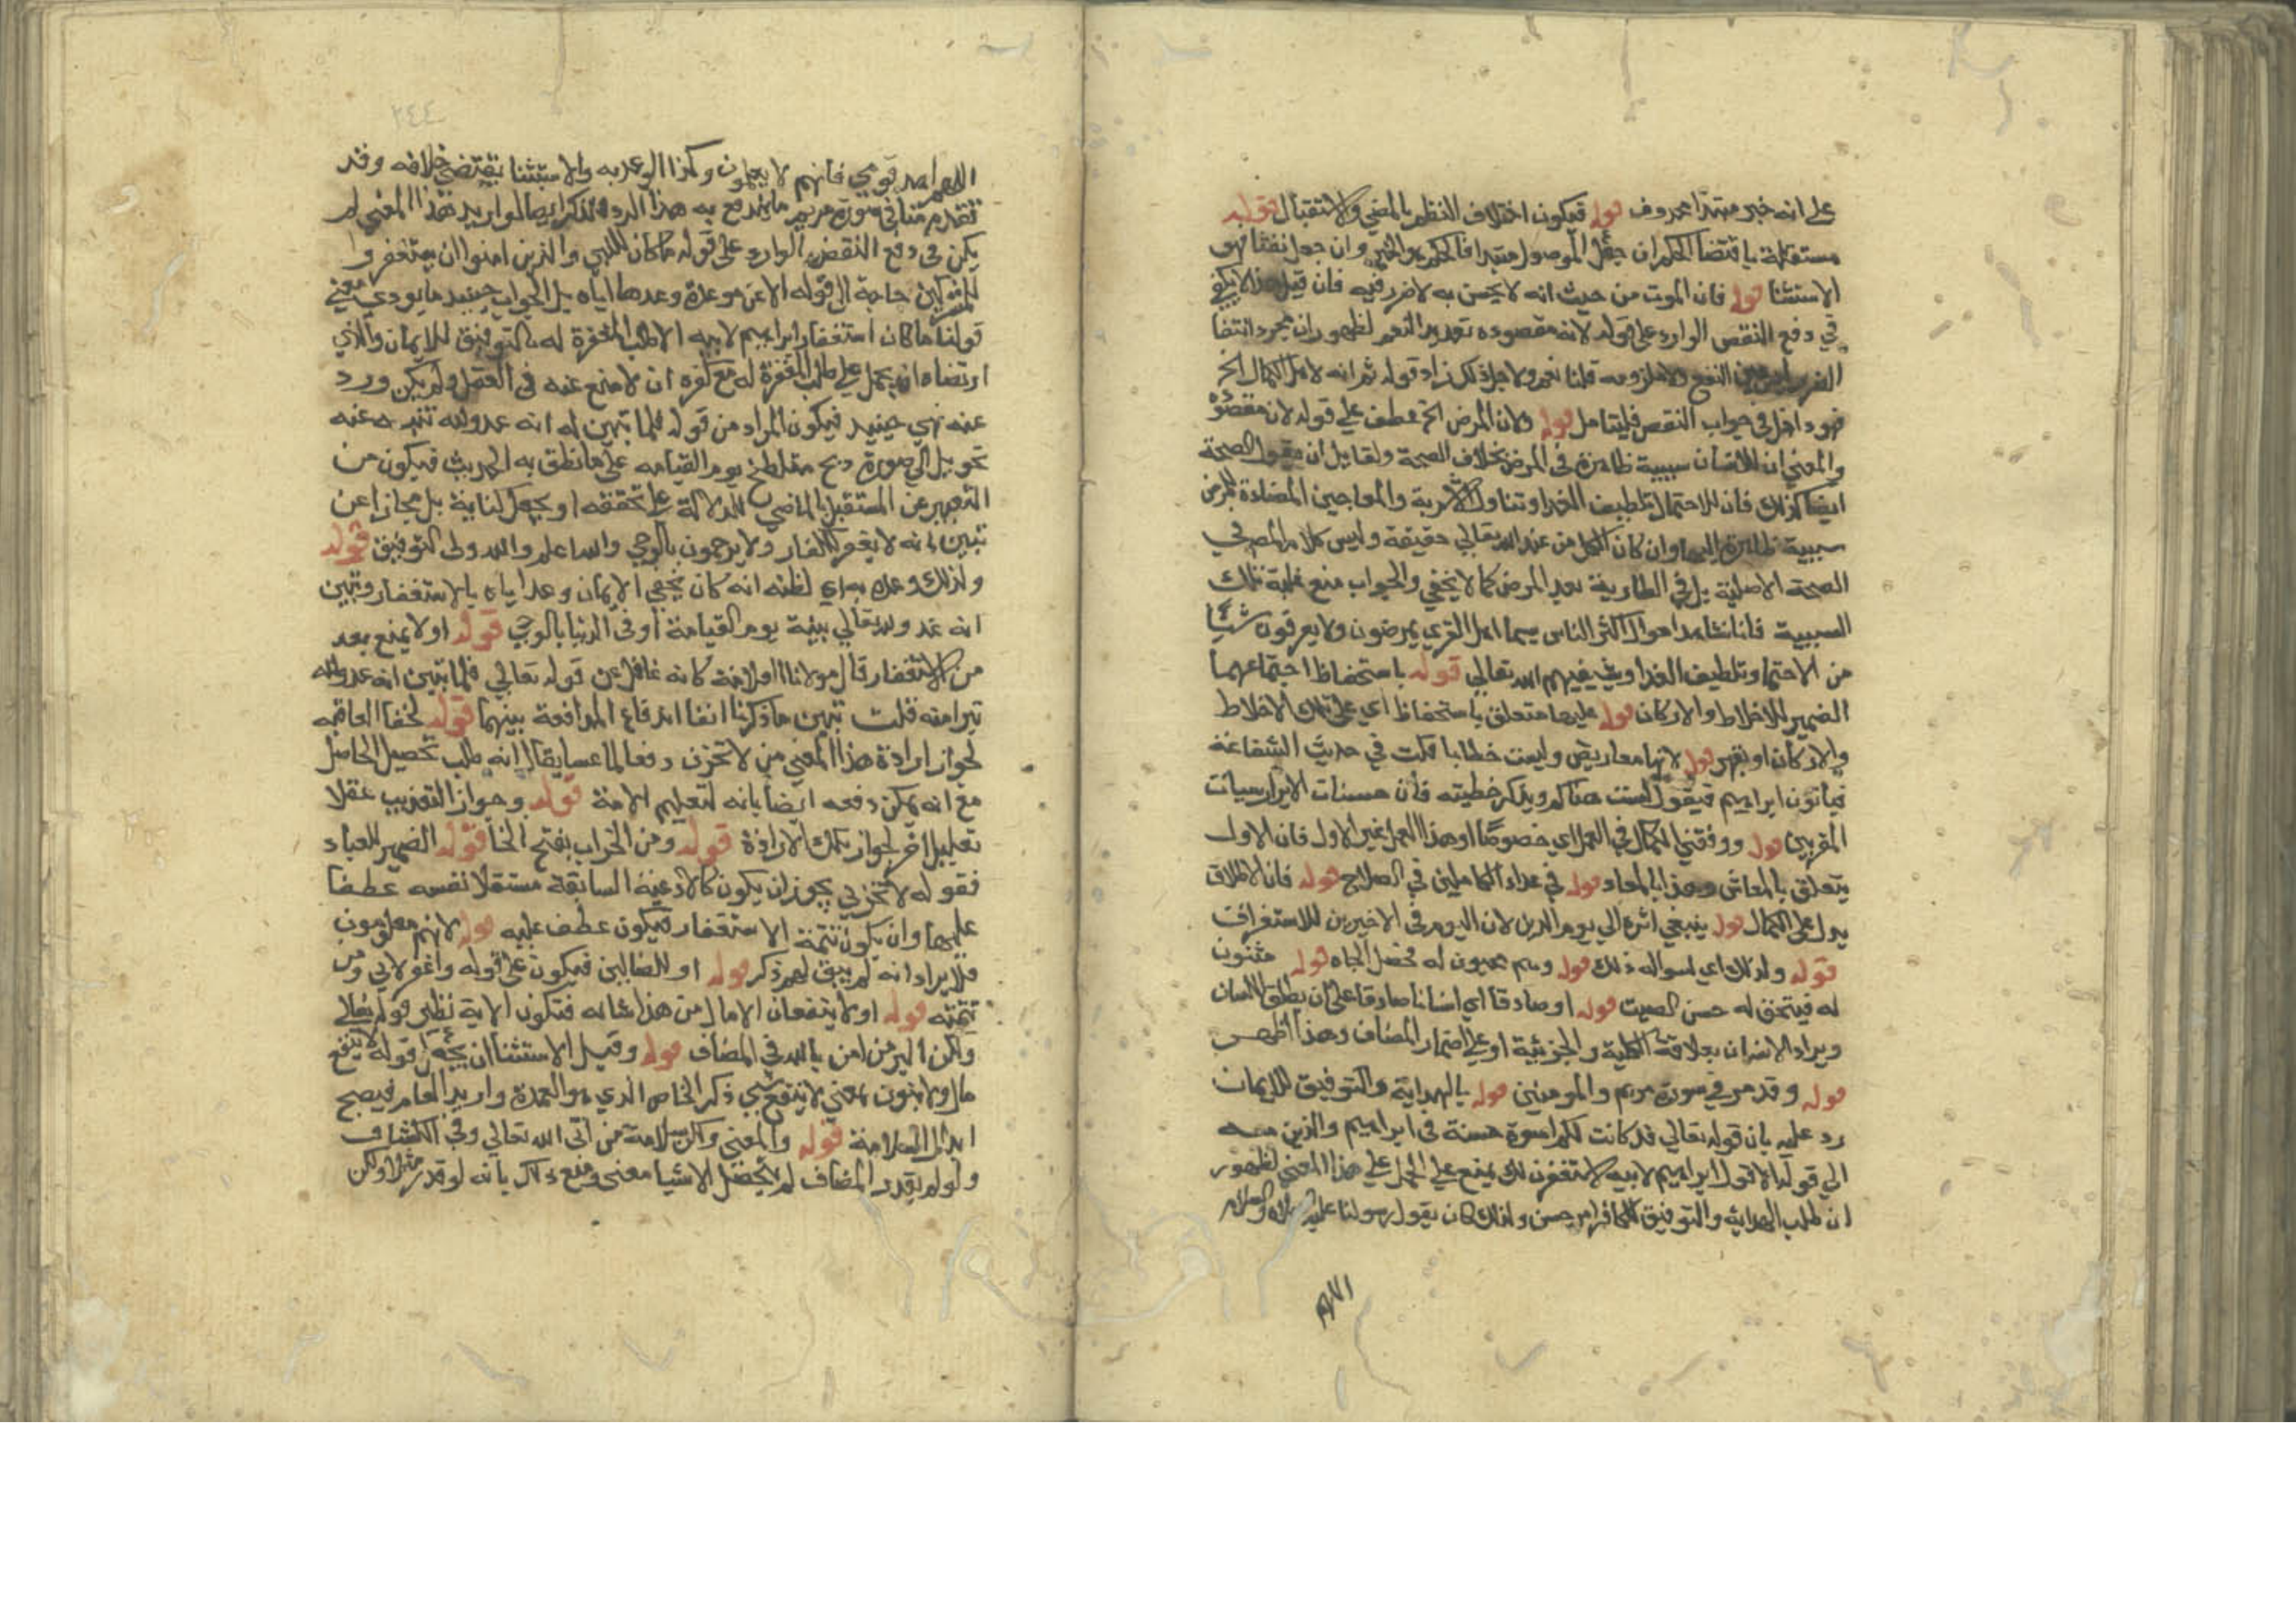 على انه خبر مبتدا محذوف قوله فيكون اختلاف النظم بالمضي والاستقبال قوله
مستقلة باقتضا الحكم ان جعل الموصول مبتدا فالحكم هو الخبر وان جعل نفتا فهو
الاستثنا قوله فان الموت من حيث انه لا يحس به لا ضرر فيه فان قيل هذا لا يكفي
في دفع النقص الوارد على قوله لانه مقصوده تعديد النعم لظهور ان مجرد انتفا
الضرر ليس عين النفع ولا ملزومه قلنا نعم ولاجل ذلك زاد قوله ثم انه لاهل الكمال الخ
فهو داخل في جواب النقص فليتامل قوله ولان المرض الخ عطف على قوله لان مقصوده
والمعني ان للانسان سببية ظاهرة في المرض بخلاف الصحة ولقايل ان يقول الصحة
ايضا كذلك فان للاحتما وتلطيف الغدا وتناول الاشربة والمعاجين المضادة للمرض
سببية ظاهرة اليها وان كان الكل من عند الله تعالي حقيقة وليس كلامه في
الصحة الاصلية بل في الطارية بعد المرض كما لا يخفي والجواب منع غلبة تلك
السببية فانا نشاهد احوال اكثر الناس سيما اهل القري يمرضون ولا يعرفون شيئا
من الاحتما وتلطيف الغدا ويشفيهم الله تعالي قوله باستحفاظ اجتماعهما
الضمير للاخلاط والاركان قوله عليها متعلق باستحفاظ اي على تلك الاخلاط
والاركان او بقهر قوله لانها معاريض وليست خطايا قلت في حديث الشفاعة
فياتون ابراهيم فيقول لست هناكم ويذكر خطيته فان حسنات الابرار سيات
المقربين قوله ووفقني للكمال في العمل اي خصوصا او هذا العمل غير الاول فان الاول
يتعلق بالمعاش وهذا بالمعاد قوله في عداد الكاملين في الصلاح قوله فان الاطلاق
يدل على الكمال قوله ينبغي اثره الي يوم الدين لان اليوم في الاخيرين للاستغراق
قوله ولذلك اي لسواله ذلك قوله وهم محبون له محصل الجاه قوله مثنون
له فيتحقق له حسن الصيت قوله او صادقا اي انسانا صادقا على ان يطلق اللسان
ويراد الانسان بعلاقة الكلية والجزئية او على اضمار المضاف وهذا اظهر
قوله وقد مر في سورة مريم والمومنين قوله بالهداية والتوفيق للايمان
رد عليه بان قوله تعالي قد كانت لكم اسوة حسنة في ابراهيم والذين معه
الي قوله الا قول ابراهيم لابيه لاستغفرن لك يمنع على الحمل على هذا المعني لظهور
ان طلب الهداية والتوفيق للكافر امر حسن ولذلك كان يقول رسولنا عليه الصلاة والسلام
اللهم
٢٤٤
اللهم اهد قومي فانهم لا يعلمون وكذا الوعد به والاستثنا يقتضي خلافه وقد
تقدم منا في سورة مريم ما يندفع به هذا الرد ونذكر ايضا لو اريد هذا المعني لم
يكن في دفع النقض الوارد على قوله ما كان للنبي والذين امنوا ان يستغفروا
للمشركين حاجة الي قوله الا عن موعدة وعدها اياه بل الجواب حينيد ما يودي معني
قولنا ما كان استغفار ابراهيم لابيه الا طلب المغفرة له بالتوفيق للايمان والذي
ارتضاه انه يحمل على طلب المغفرة له مع كفره ان لا منع عنه في العقل ولم يكن ورد
عنه نهي حينيد فيكون المراد من قوله فلما تبين له انه عدو لله تبرا عنه
تحويل الي صورة ذيخ متلطخ يوم القيامه على ما نطق به الحديث فيكون من
التعبير عن المستقبل بالماضي للدلالة على تحققه او يجعل كناية بل مجازا عن
تبين انه لا يغفر للكفار ولا يرحمون بالوحي والله اعلم والله ولى التوفيق قوله
ولذلك وعده به اي لظنه انه كان يخفي الايمان وعد اياه بالاستغفار وتبين
انه عدو لله تعالي بينة يوم القيامة او في الدنيا بالوحي قوله او لا يمنع بعد
من الاستغفار قال مولانا العلامة كانه غافل عن قوله تعالي فلما تبين انه عدو لله
تبرا منه قلت تبين ما ذكرنا انفا اندفاع المدافعة بينهما قوله لخفا العاقبه
لجواز ارادة هذا المعني من لا تخزن دفعا لما عسى يقال انه طلب تحصيل الحاصل
مع انه يمكن دفعه ايضا بانه لتعليم الامة قوله وجواز التعذيب عقلا
تعليل اخر لجواز تلك الارادة قوله ومن الخراب بفتح الخا قوله الضمير للعباد
فقوله لا تخزني يجوز ان يكون كالادعية السابقة مستقلا نفسه عطفا
عليها وان يكون تتمة الاستغفار فيكون عطف عليه قوله لانهم معلومون
فلا يراد انه لم يبق لهم ذكر قوله او للضالين فيكون على قوله واغفر لابي ومن
تتمته قوله او لا ينفعان الا مال من هذا شانه فتكون الاية نظير قوله تعالي
ولكن البر من امن بالله في المضاف قوله وقيل الاستثنا ان يجعل قوله لا ينفع
مال ولا بنون بمعني لا ينفع شي ذكر الخاص الذي هو العمدة واريد العام فيصح
ابدال السلامة قوله والمعني ولكن سلامة من اتي الله تعالي وفي الكشاف
ولو لم يقدر المضاف لم يتحصل للاستثنا معنى ومنع ذلك بانه لو قدر مثلا ولكن